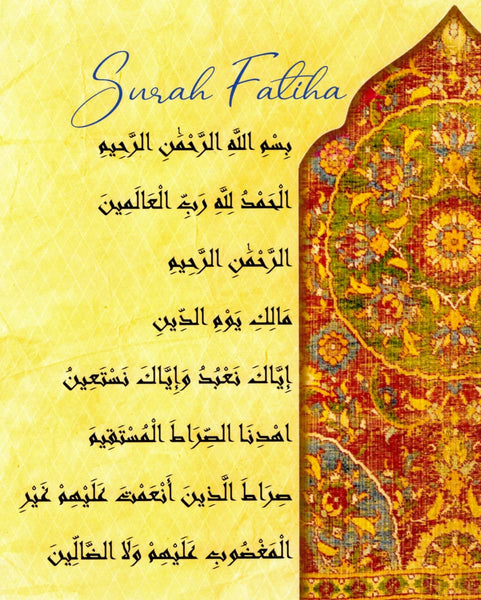 Surah Fatiha
بِسْمِ اللَّهِ الرَّحْمَٰنِ الرَّحِيمِ
الْحَمْدُ لِلَّهِ رَبِّ الْعَالَمِينَ
الرَّحْمَٰنِ الرَّحِيمِ
مَالِكِ يَوْمِ الدِّينِ
إِيَّاكَ نَعْبُدُ وَإِيَّاكَ نَسْتَعِينُ
اهْدِنَا الصِّرَاطَ الْمُسْتَقِيمَ
صِرَاطَ الَّذِينَ أَنْعَمْتَ عَلَيْهِمْ غَيْرِ
الْمَغْضُوبِ عَلَيْهِمْ وَلَا الضَّالِّينَ